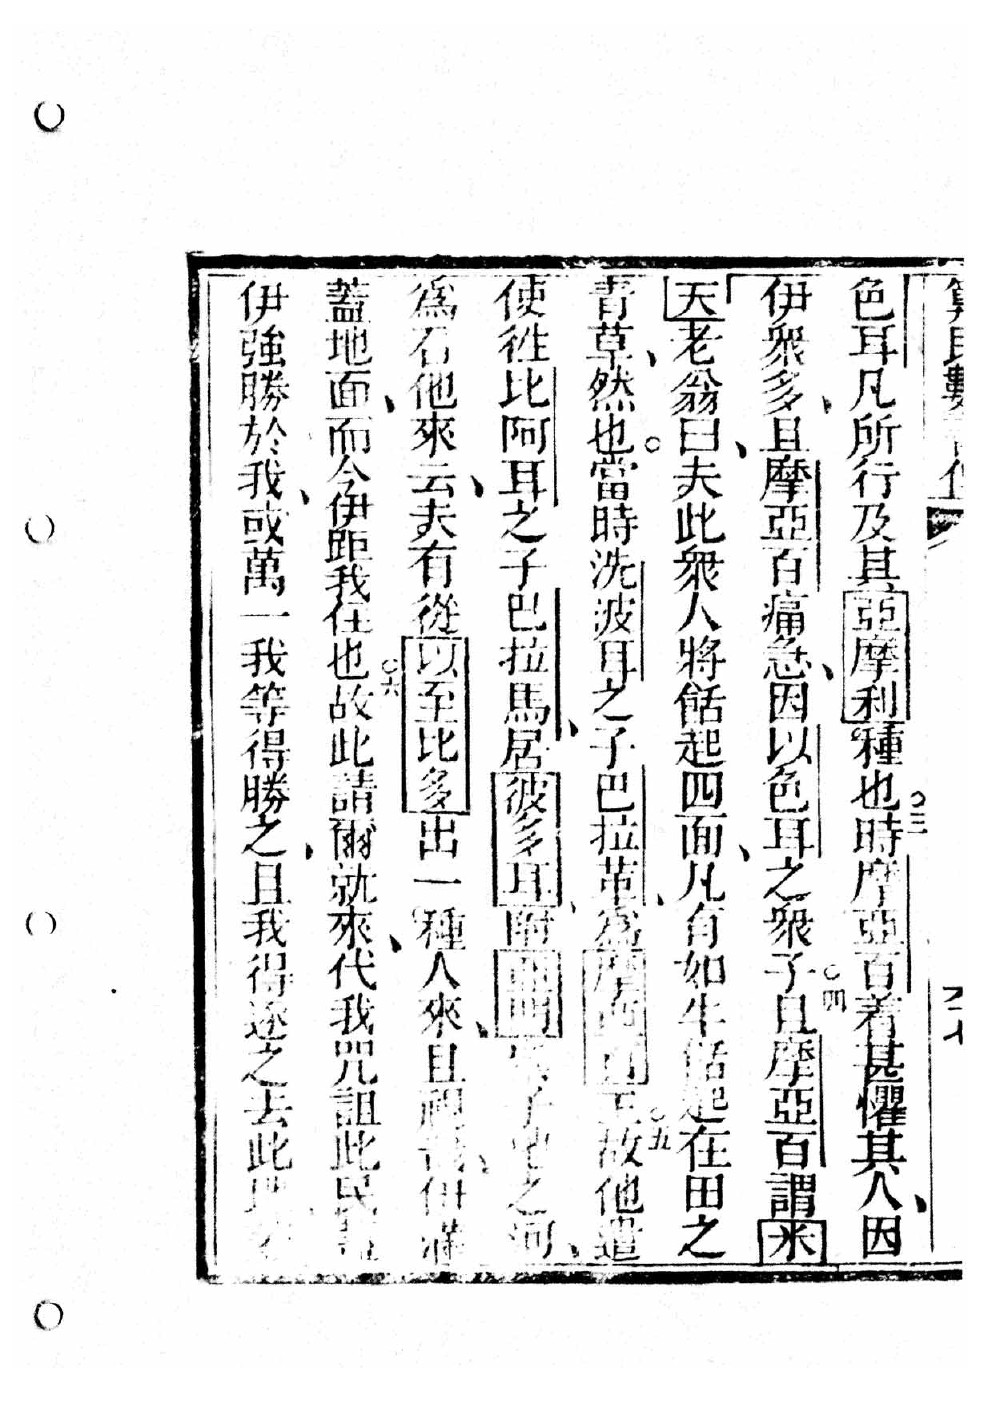 算民數書
色耳凡所行及其亞摩利種也三時摩亞百着甚懼其人、因
伊衆多、且摩亞百痛急、因以色耳之衆子四且摩亞百謂米
天老翁曰、夫此衆人將餂起四面、凡有如牛餂起在田之
青草、然也。當時洗波耳之子巴拉革、爲摩亞百王五故他遣
使徃比阿耳之子巴拉馬、居彼多耳、附之河、
爲石他來云、夫有從以至比多出一種人來、且伊
蓋地面、而今伊距我住也六故此請爾就來、代我咒詛此民
伊強勝於我、或萬一我等得勝之、且我得逐之去此